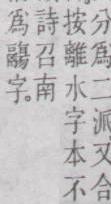 分為二派又合
按離水字本不
詩召南
為鬺字。